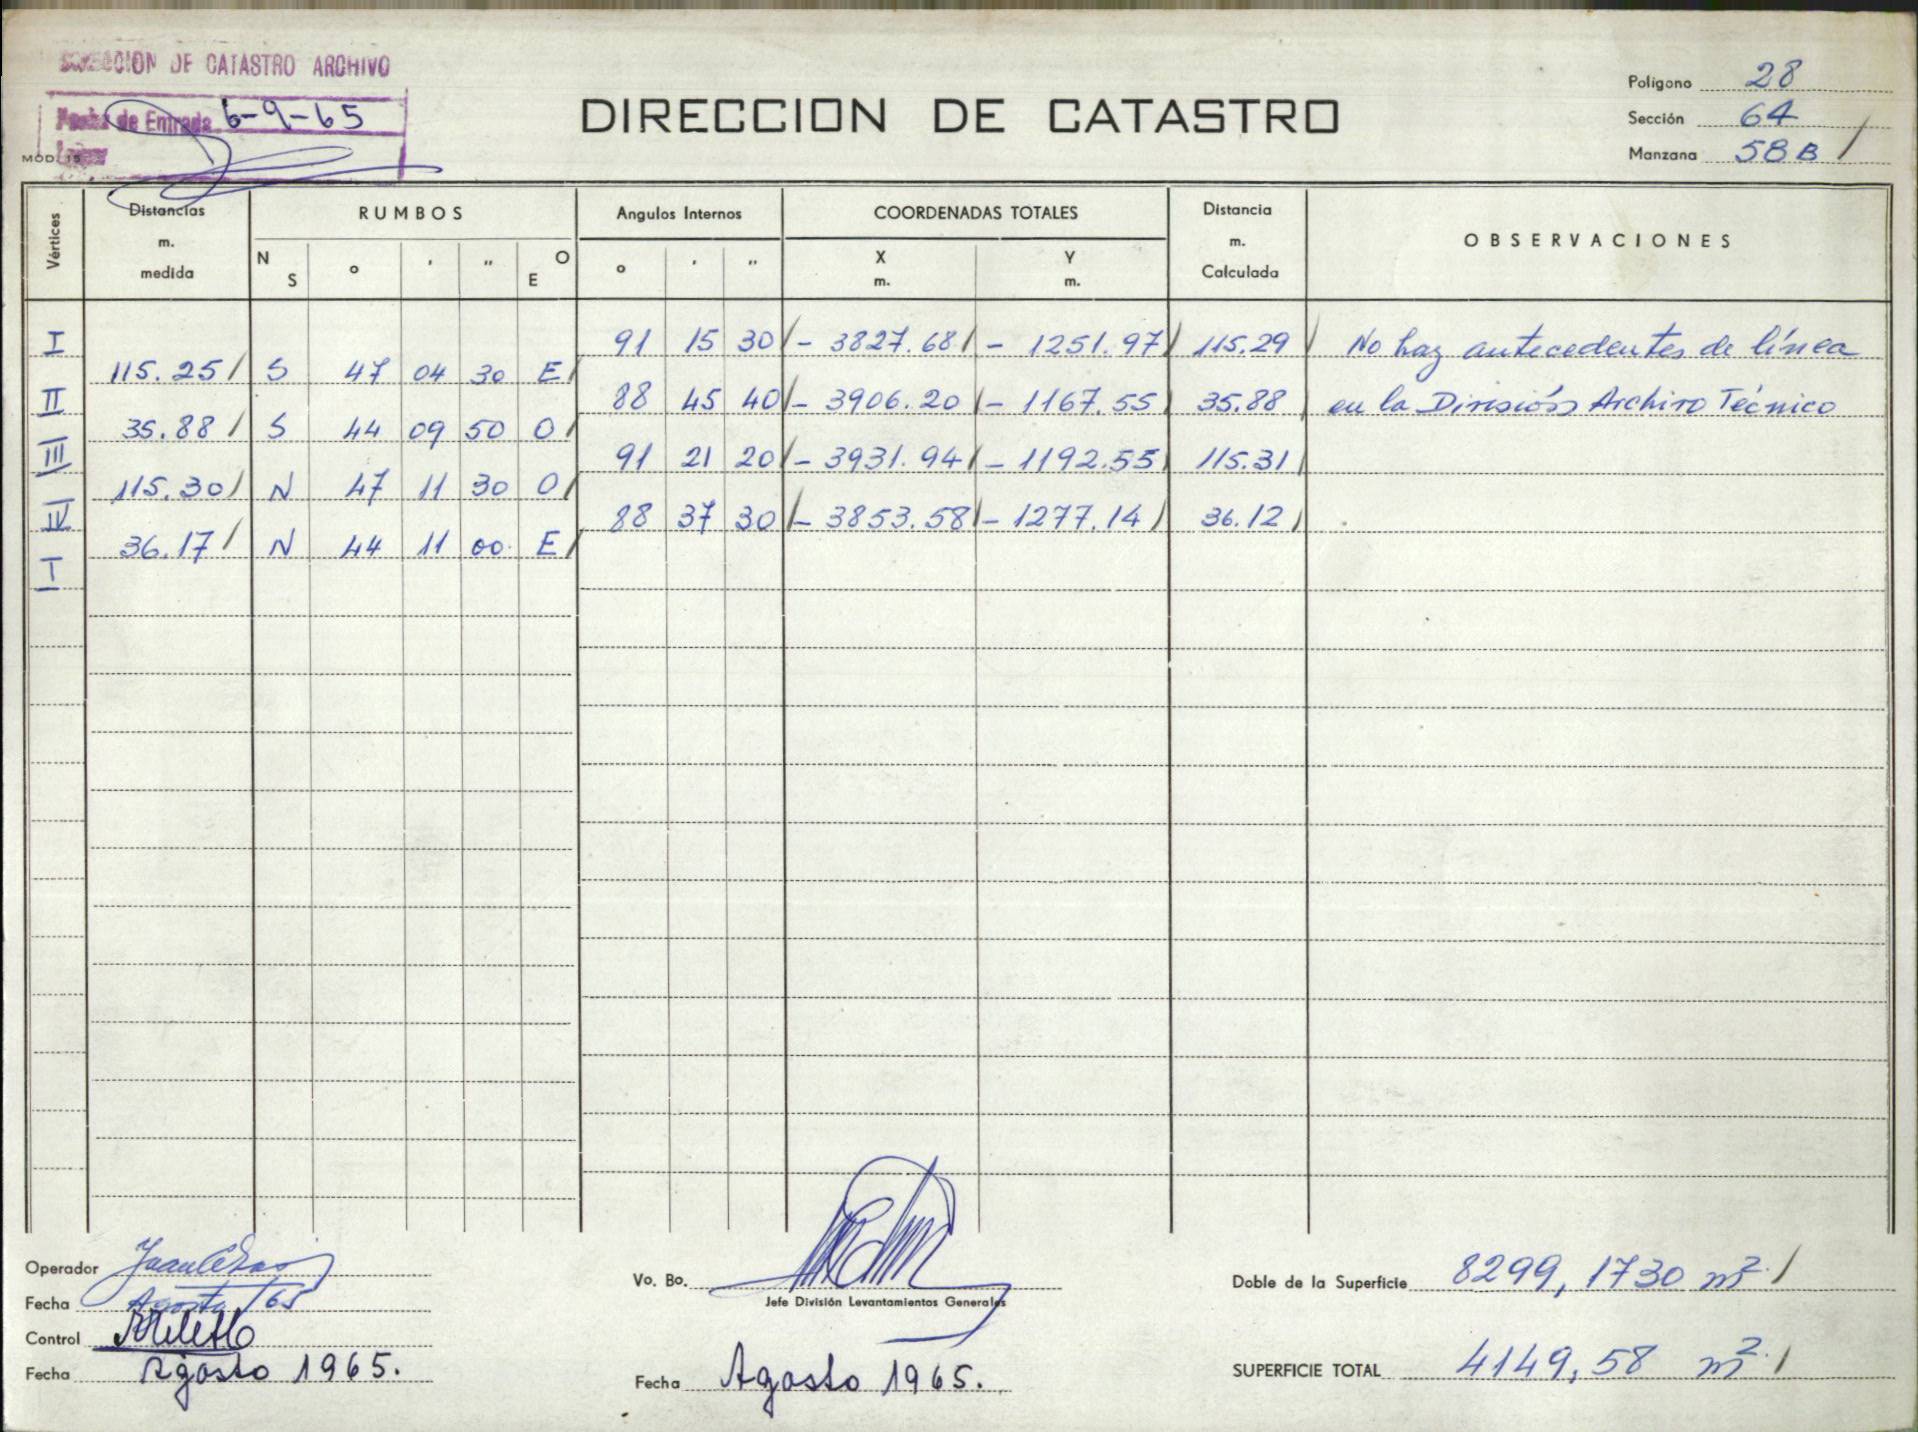 DIRECCION DE CATASTRO ARCHIVO
Fecha de Entrada 6-9-65
MOD. 15
DIRECCION DE CATASTRO
Polígono 28
Sección 64
Manzana 58 B /
Vértices Distancias m. medida RUMBOS N S o ' " O E Angulos Internos o ' " COORDENADAS TOTALES X m. Y m. Distancia m. Calculada OBSERVACIONES
I 91 15 30 / - 3827.68 / - 1251.97 / 115.29 / No hay antecedentes de línea
115.25 / S 47 04 30 E /
II 88 45 40 / - 3906.20 / - 1167.55 / 35.88 / en la División Archivo Técnico
35.88 / S 44 09 50 O /
III 91 21 20 / - 3931.94 / - 1192.55 / 115.31 /
115.30 / N 47 11 30 O /
IV 88 37 30 / - 3853.58 / - 1277.14 / 36.12 /
36.17 / N 44 11 00 E /
I
Operador
Fecha Agosto / 65
Control
Fecha Agosto 1965.
Vo. Bo.
Jefe División Levantamientos Generales
Fecha Agosto 1965.
Doble de la Superficie 8299,1730 m². /
SUPERFICIE TOTAL 4149,58 m². /